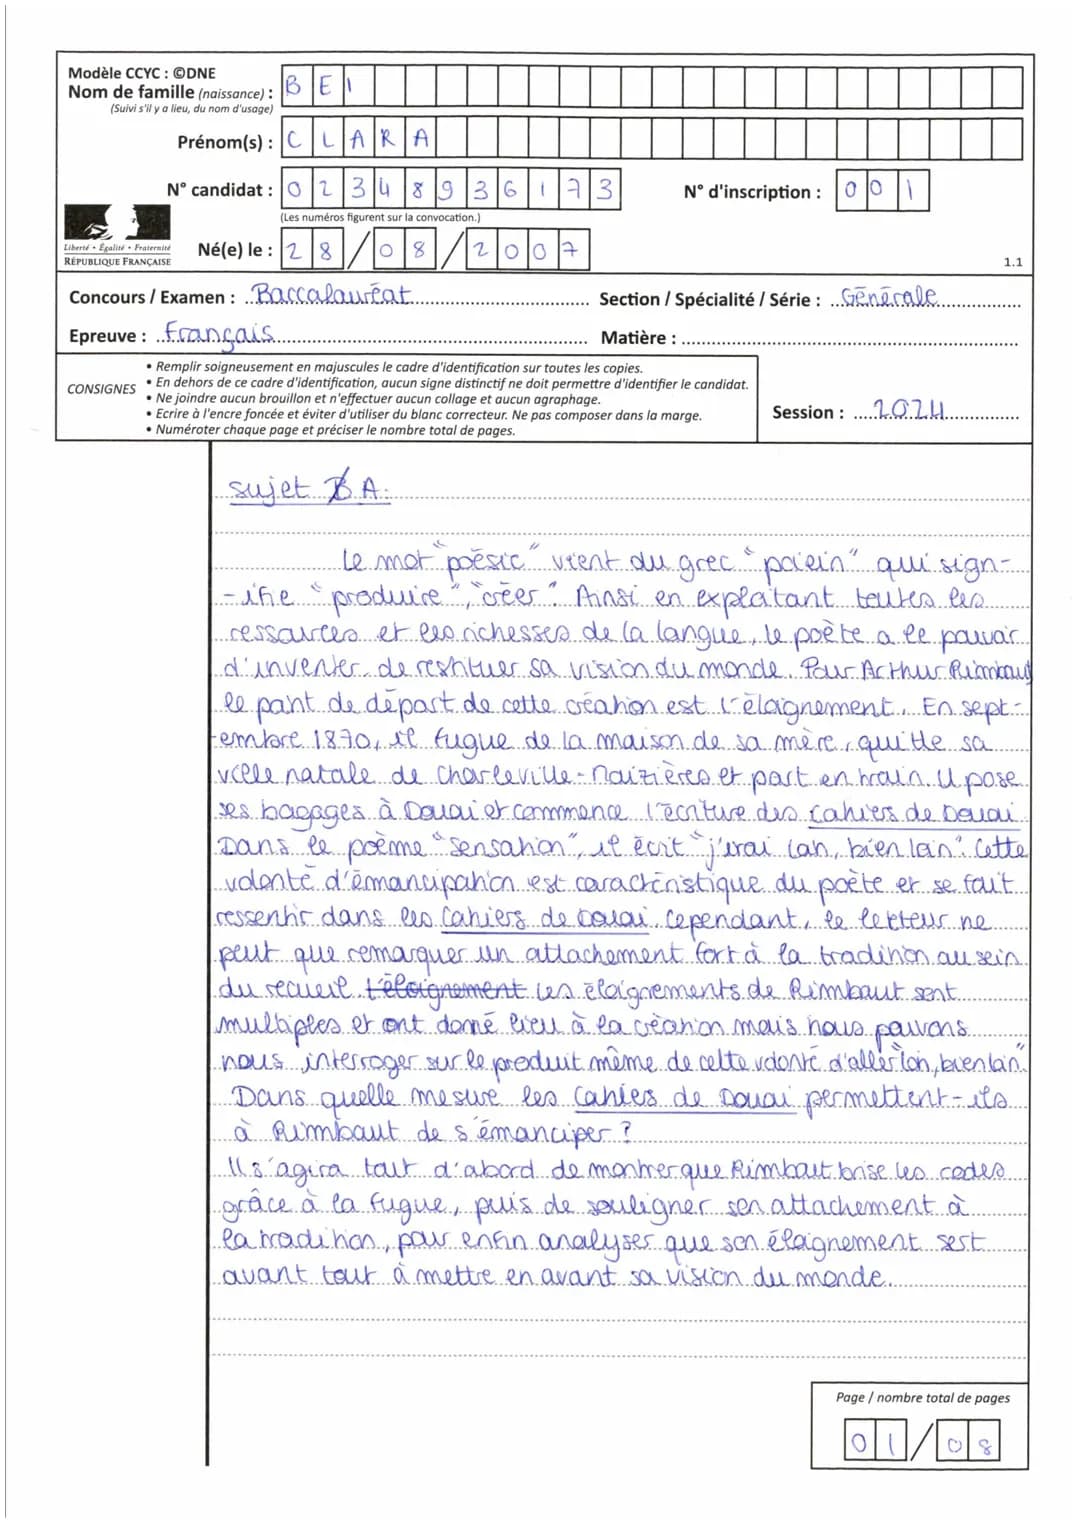 Modèle CCYC : ©DNE
Nom de famille (naissance) : BEI
(Suivi s'il y a lieu, du nom d'usage)
Prénom(s) : CLARA
N° candidat : 02348936173 N° d'inscription : 001
(Les numéros figurent sur la convocation.)
Liberté • Égalité • Fraternité
RÉPUBLIQUE FRANÇAISE
Né(e) le : 28/08/2007
1.1
Concours / Examen : Baccalauréat Section / Spécialité / Série : Générale
Epreuve : Français Matière :
CONSIGNES
• Remplir soigneusement en majuscules le cadre d'identification sur toutes les copies.
• En dehors de ce cadre d'identification, aucun signe distinctif ne doit permettre d'identifier le candidat.
• Ne joindre aucun brouillon et n'effectuer aucun collage et aucun agraphage.
• Ecrire à l'encre foncée et éviter d'utiliser du blanc correcteur. Ne pas composer dans la marge.
• Numéroter chaque page et préciser le nombre total de pages.
Session : 2024
sujet B A.
Le mot "poésie" vient du grec "poiein" qui sign-
-ifie "produire", "créer". Ainsi en exploitant toutes les
ressources et les richesses de la langue, le poète a le pouvoir
d'inventer, de restituer sa vision du monde. Pour Arthur Rimbaud
le point de départ de cette création est l'éloignement. En sept-
embre 1870, il fugue de la maison de sa mère, quitte sa
ville natale de Charleville-Maizières et part en train. Il pose
ses bagages à Douai et commence l'écriture des Cahiers de Douai.
Dans le poème "Sensation", il écrit "j'irai loin, bien loin". Cette
volonté d'émancipation est caractéristique du poète et se fait
ressentir dans les Cahiers de Douai. Cependant, le lecteur ne
peut que remarquer un attachement fort à la tradition au sein
du recueil. L'éloignement Les éloignements de Rimbaut sont
multiples et ont donné lieu à la création mais nous pouvons
nous interroger sur le produit même de cette volonté d'aller "loin, bien loin".
Dans quelle mesure les Cahiers de Douai permettent-ils
à Rimbaut de s'émanciper ?
Il s'agira tout d'abord de montrer que Rimbaut brise les codes
grâce à la fugue, puis de souligner son attachement à
la tradition, pour enfin analyser que son éloignement sert
avant tout à mettre en avant sa vision du monde.
Page / nombre total de pages
01/08